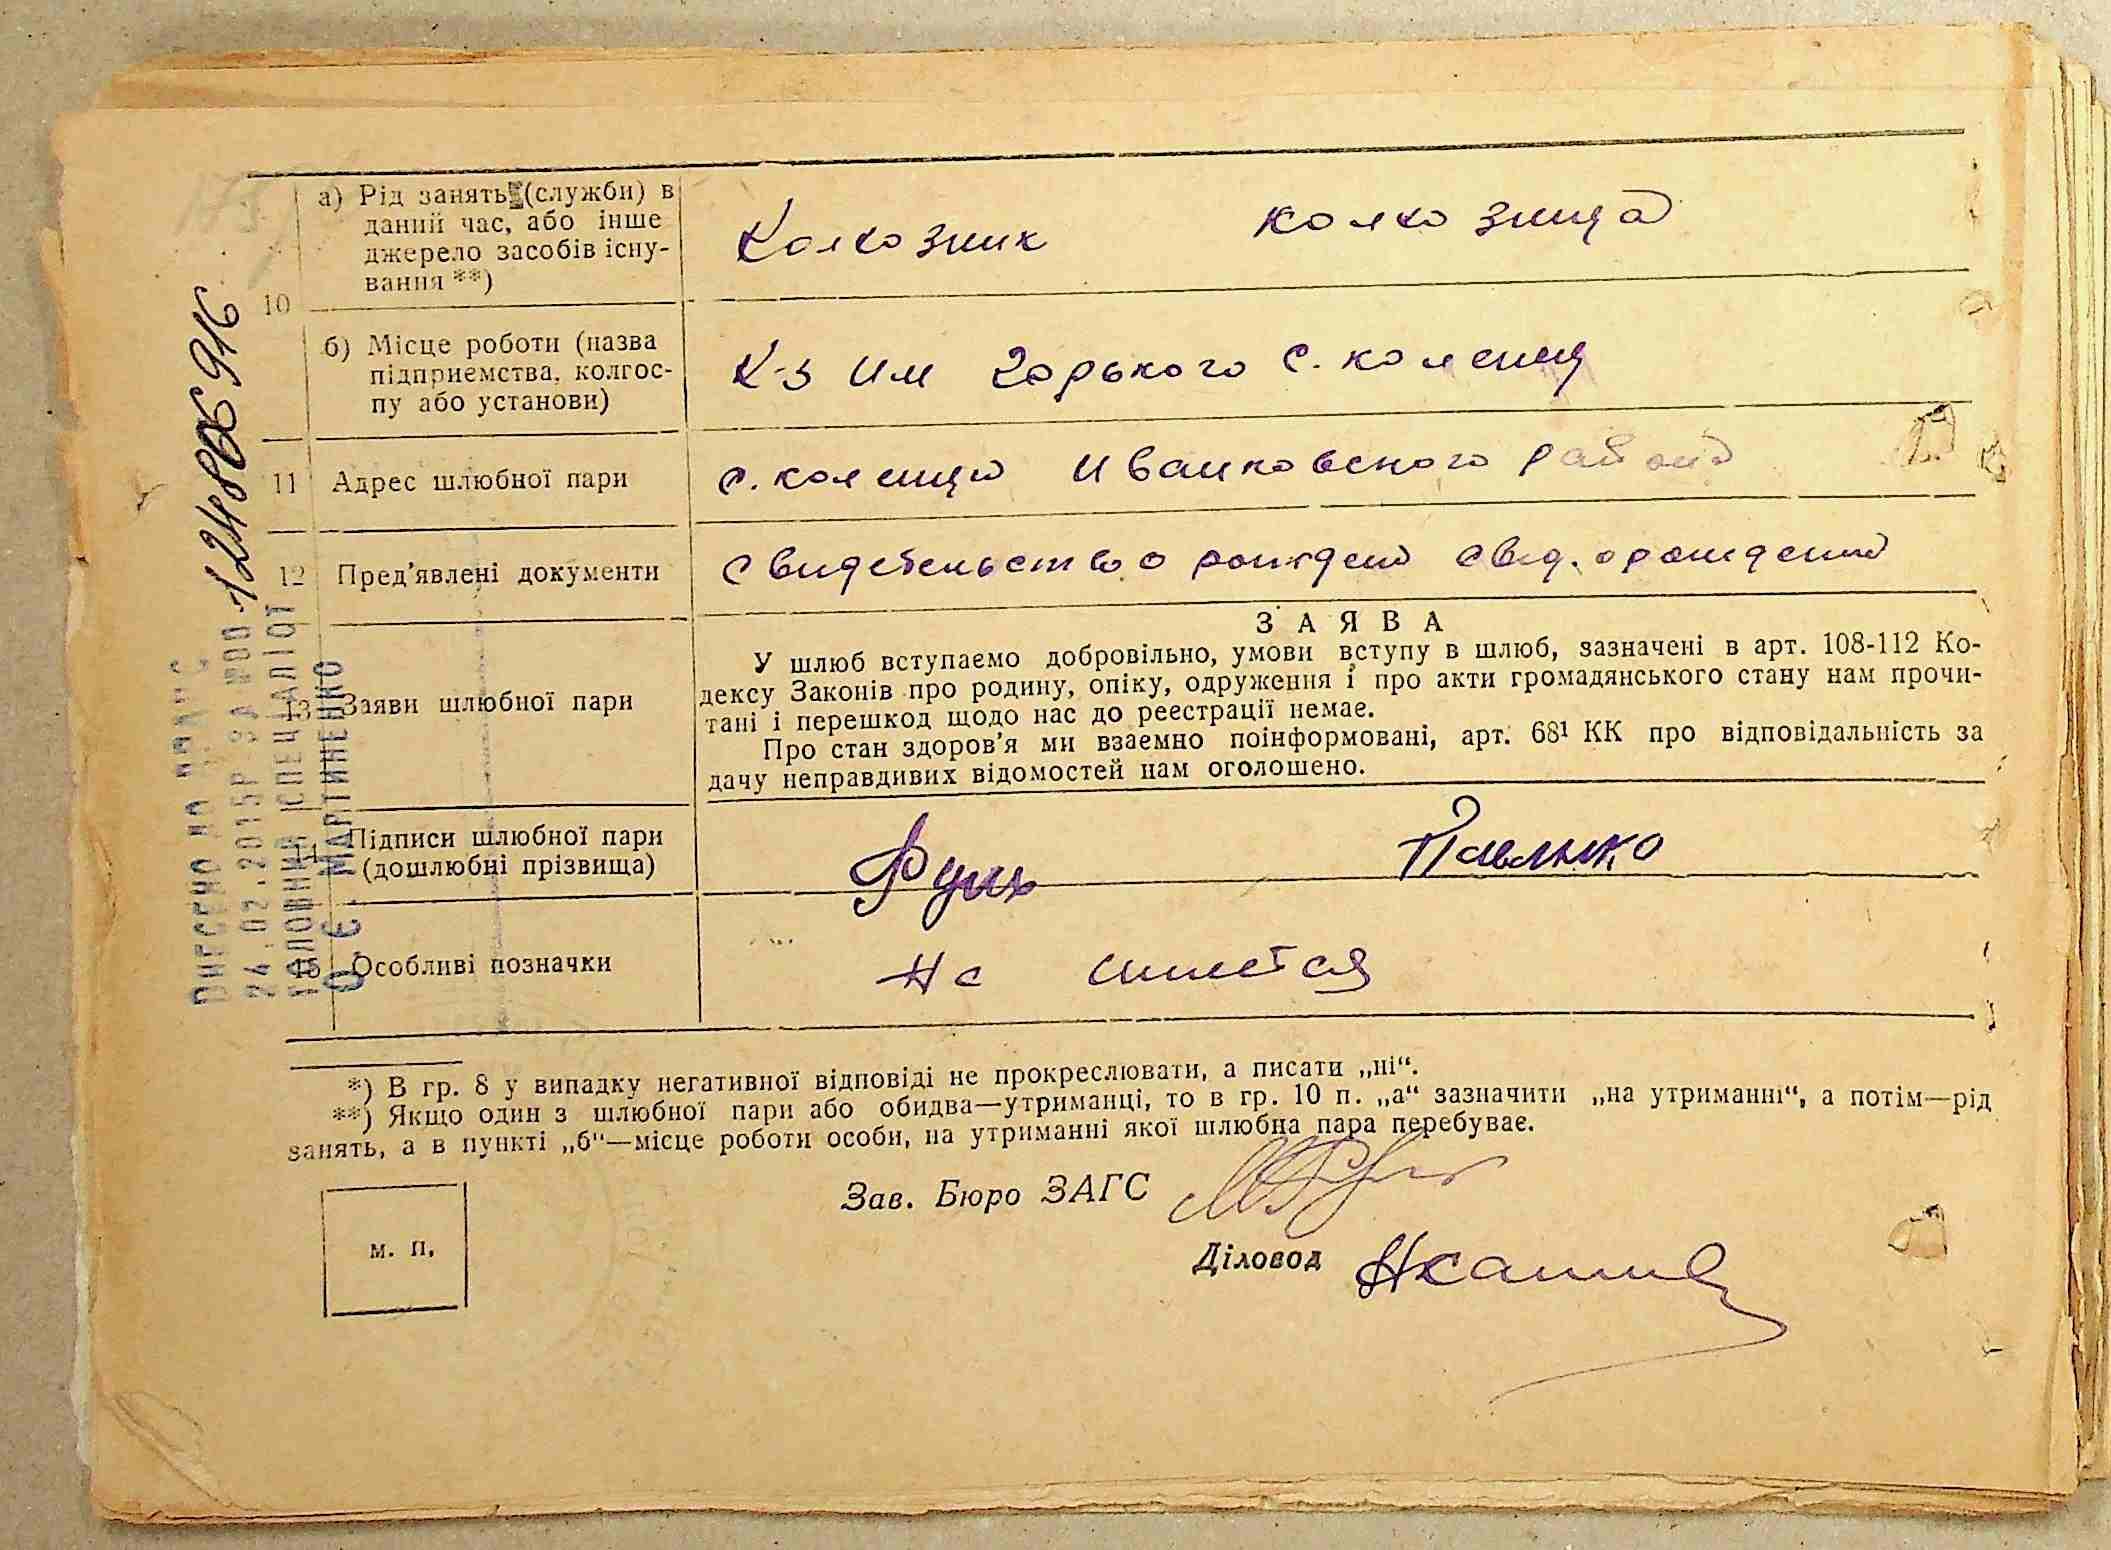 а) Рід занять (служби) в
даний час, або інше
джерело засобів існу-
вання **)
Колхозник колхозница
10
б) Місце роботи (назва
підприємства, колгос-
пу або установи)
К-з им Горького с. коленц
11 Адрес шлюбної пари
с. коленцы Иванковского района
12 Пред'явлені документи
свидетельство о рожден свид. о рождении
13 Заяви шлюбної пари
ЗАЯВА
У шлюб вступаємо добровільно, умови вступу в шлюб, зазначені в арт. 108-112 Ко-
дексу Законів про родину, опіку, одруження і про акти громадянського стану нам прочи-
тані і перешкод щодо нас до реєстрації немає.
Про стан здоров'я ми взаємно поінформовані, арт. 68¹ КК про відповідальність за
дачу неправдивих відомостей нам оголошено.
14 Підписи шлюбної пари
(дошлюбні прізвища)
Павленко
15 Особливі позначки
Не имеется
*) В гр. 8 у випадку негативної відповіді не прокреслювати, а писати „ні“.
**) Якщо один з шлюбної пари або обидва—утриманці, то в гр. 10 п. „а“ зазначити „на утриманні“, а потім—рід
занять, а в пункті „б“—місце роботи особи, на утриманні якої шлюбна пара перебуває.
Зав. Бюро ЗАГС
Діловод
м. п.
ВНЕСЕНО ДО ДРАЦС
24.02.2015Р. ЗА №00 124806916
ГОЛОВНИЙ СПЕЦІАЛІСТ
О.Є. МАРТИНЕНКО